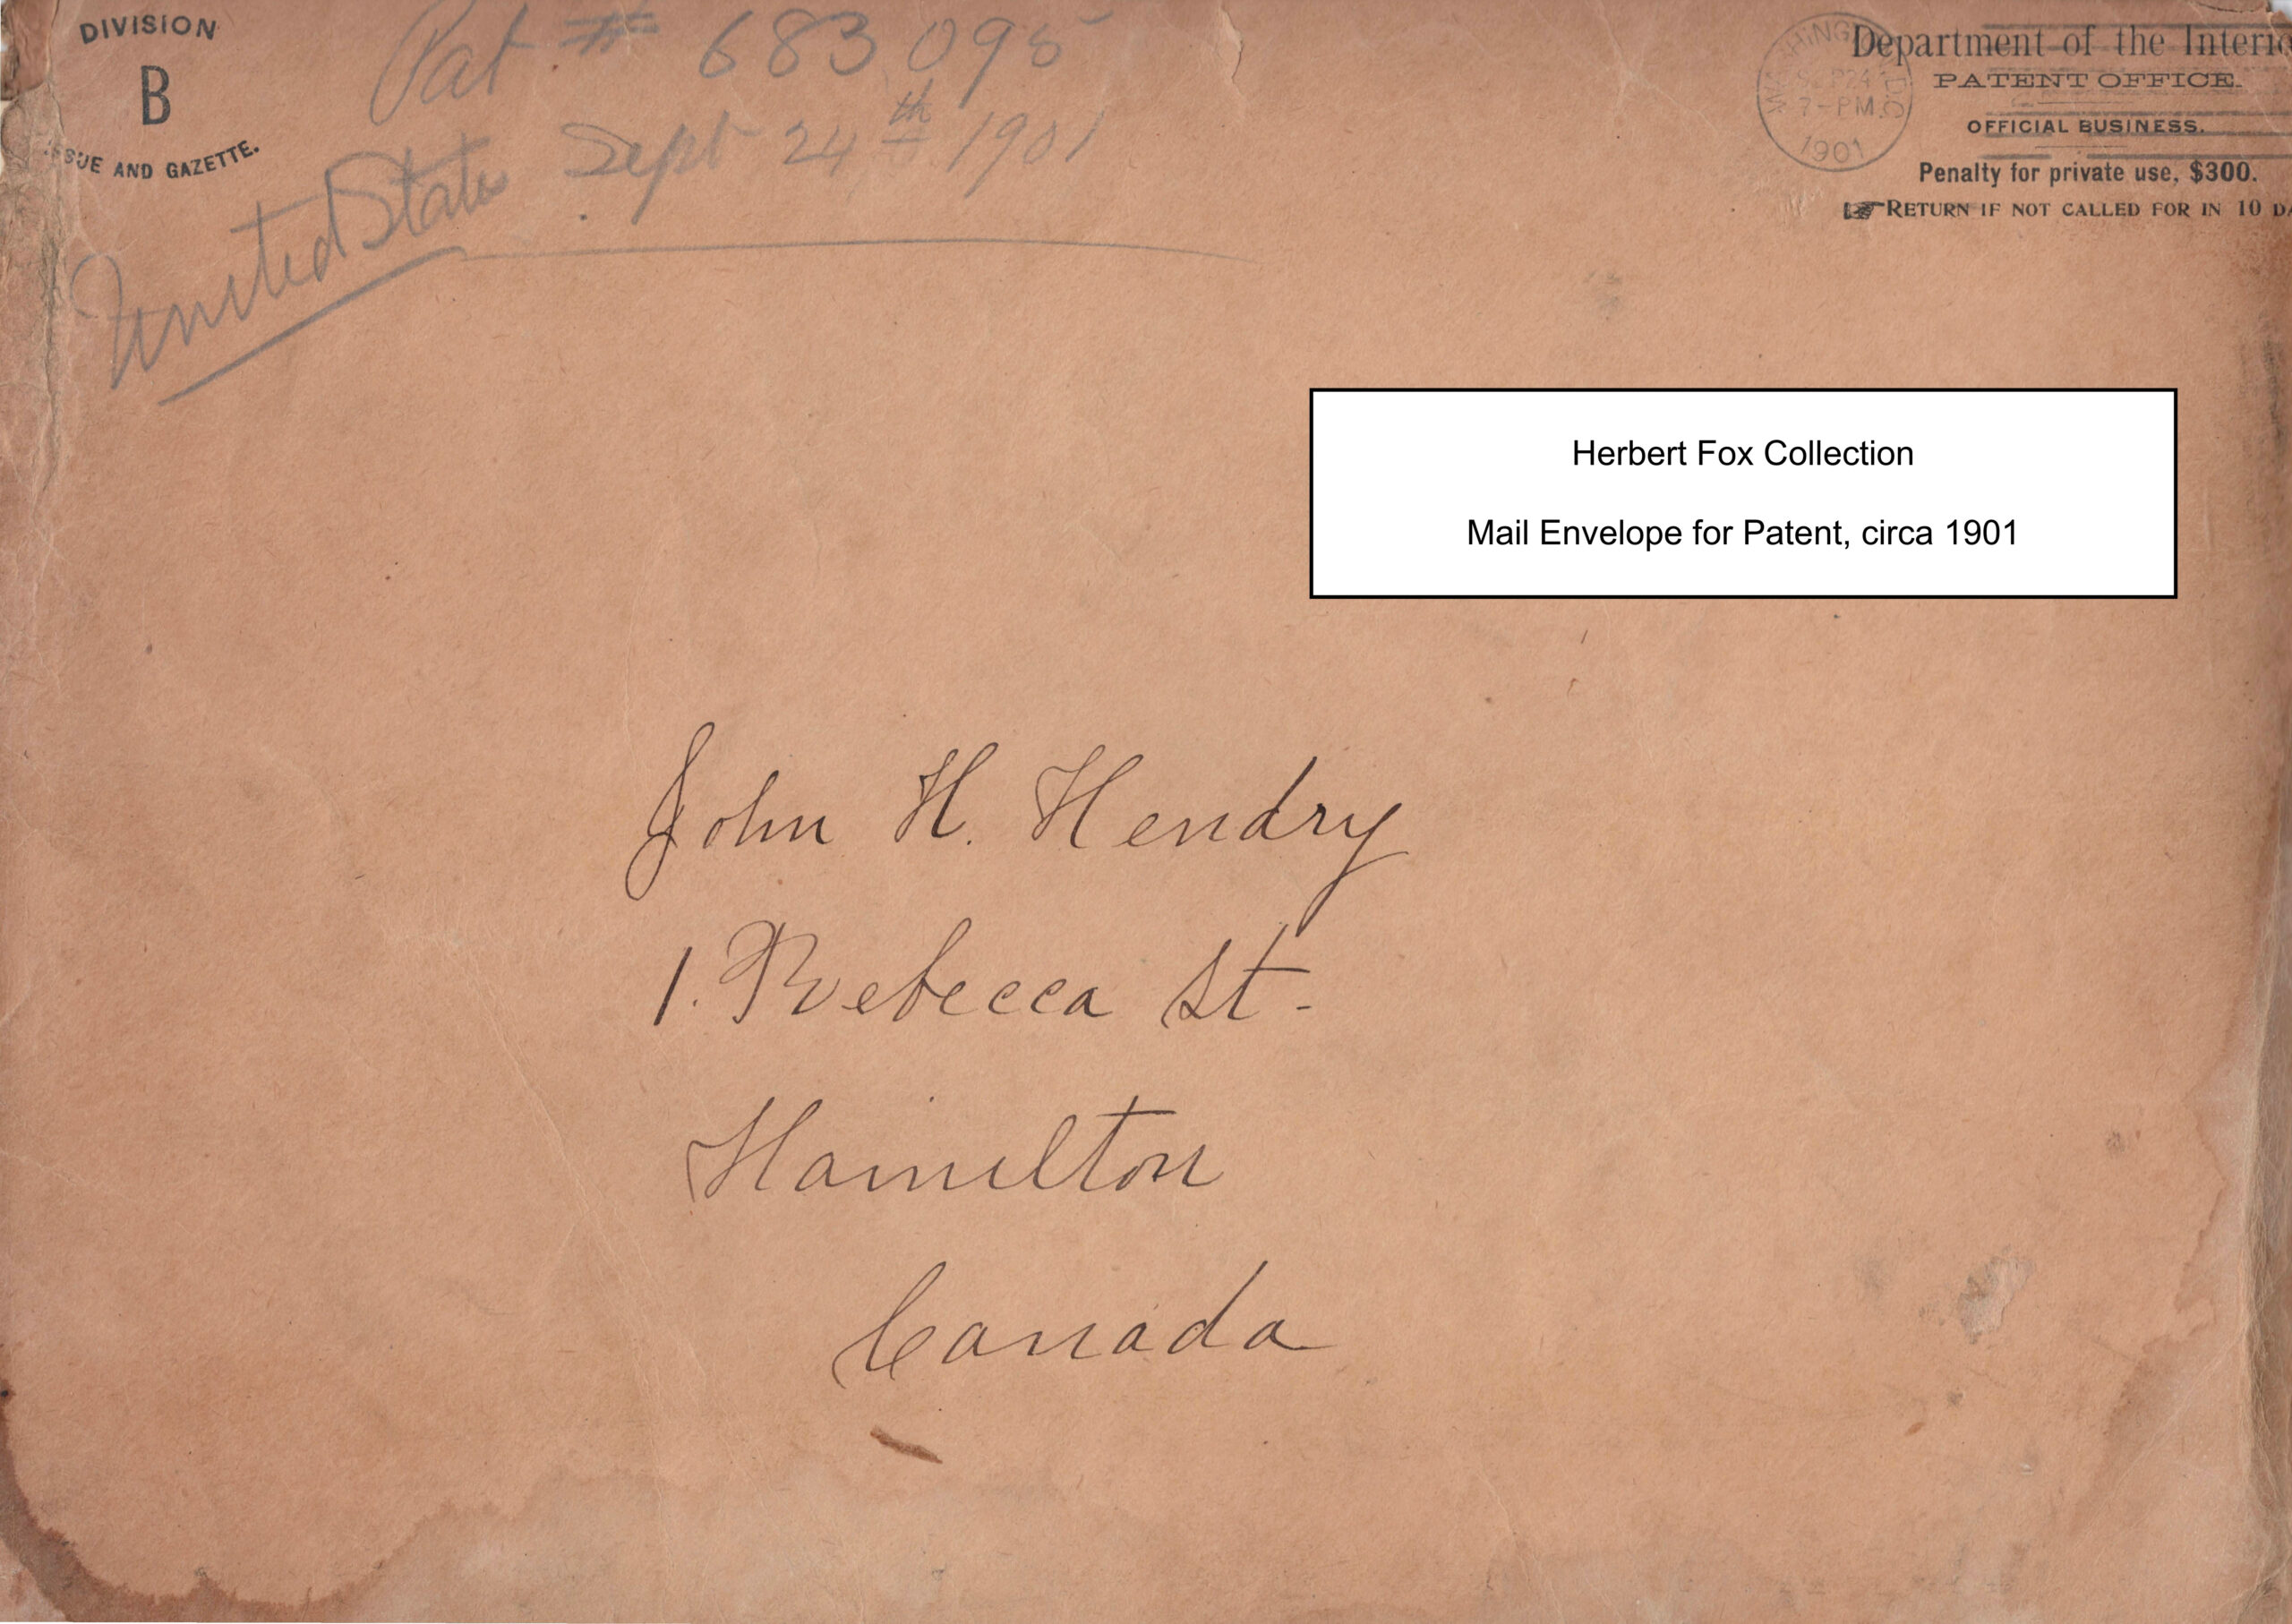 DIVISION
B
SUE AND GAZETTE.
Pat # 683 095
United States Sept 24th 1901
Department of the Interio
PATENT OFFICE.
OFFICIAL BUSINESS.
Penalty for private use, $300.
RETURN IF NOT CALLED FOR IN 10 DA
7-PM
1901
Herbert Fox Collection
Mail Envelope for Patent, circa 1901
John H. Hendry
1. Rebecca St-
Hamilton
Canada